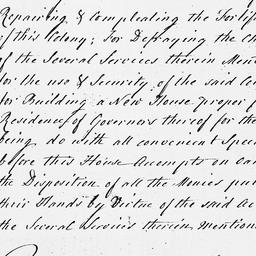 Repairing & Compleating the Fortif
of this Colony; For Defraying the Ch
of the Several Services therein Ment
for the use & Security, of the said Co
for Building a New House proper f
Residence of Governors thereof for the
being do with all convenient Spee
before this House Accompts on Oa
the Disposition of all the Monies put
their Hands by Virtue of the said Ac
the Several Services therein mention